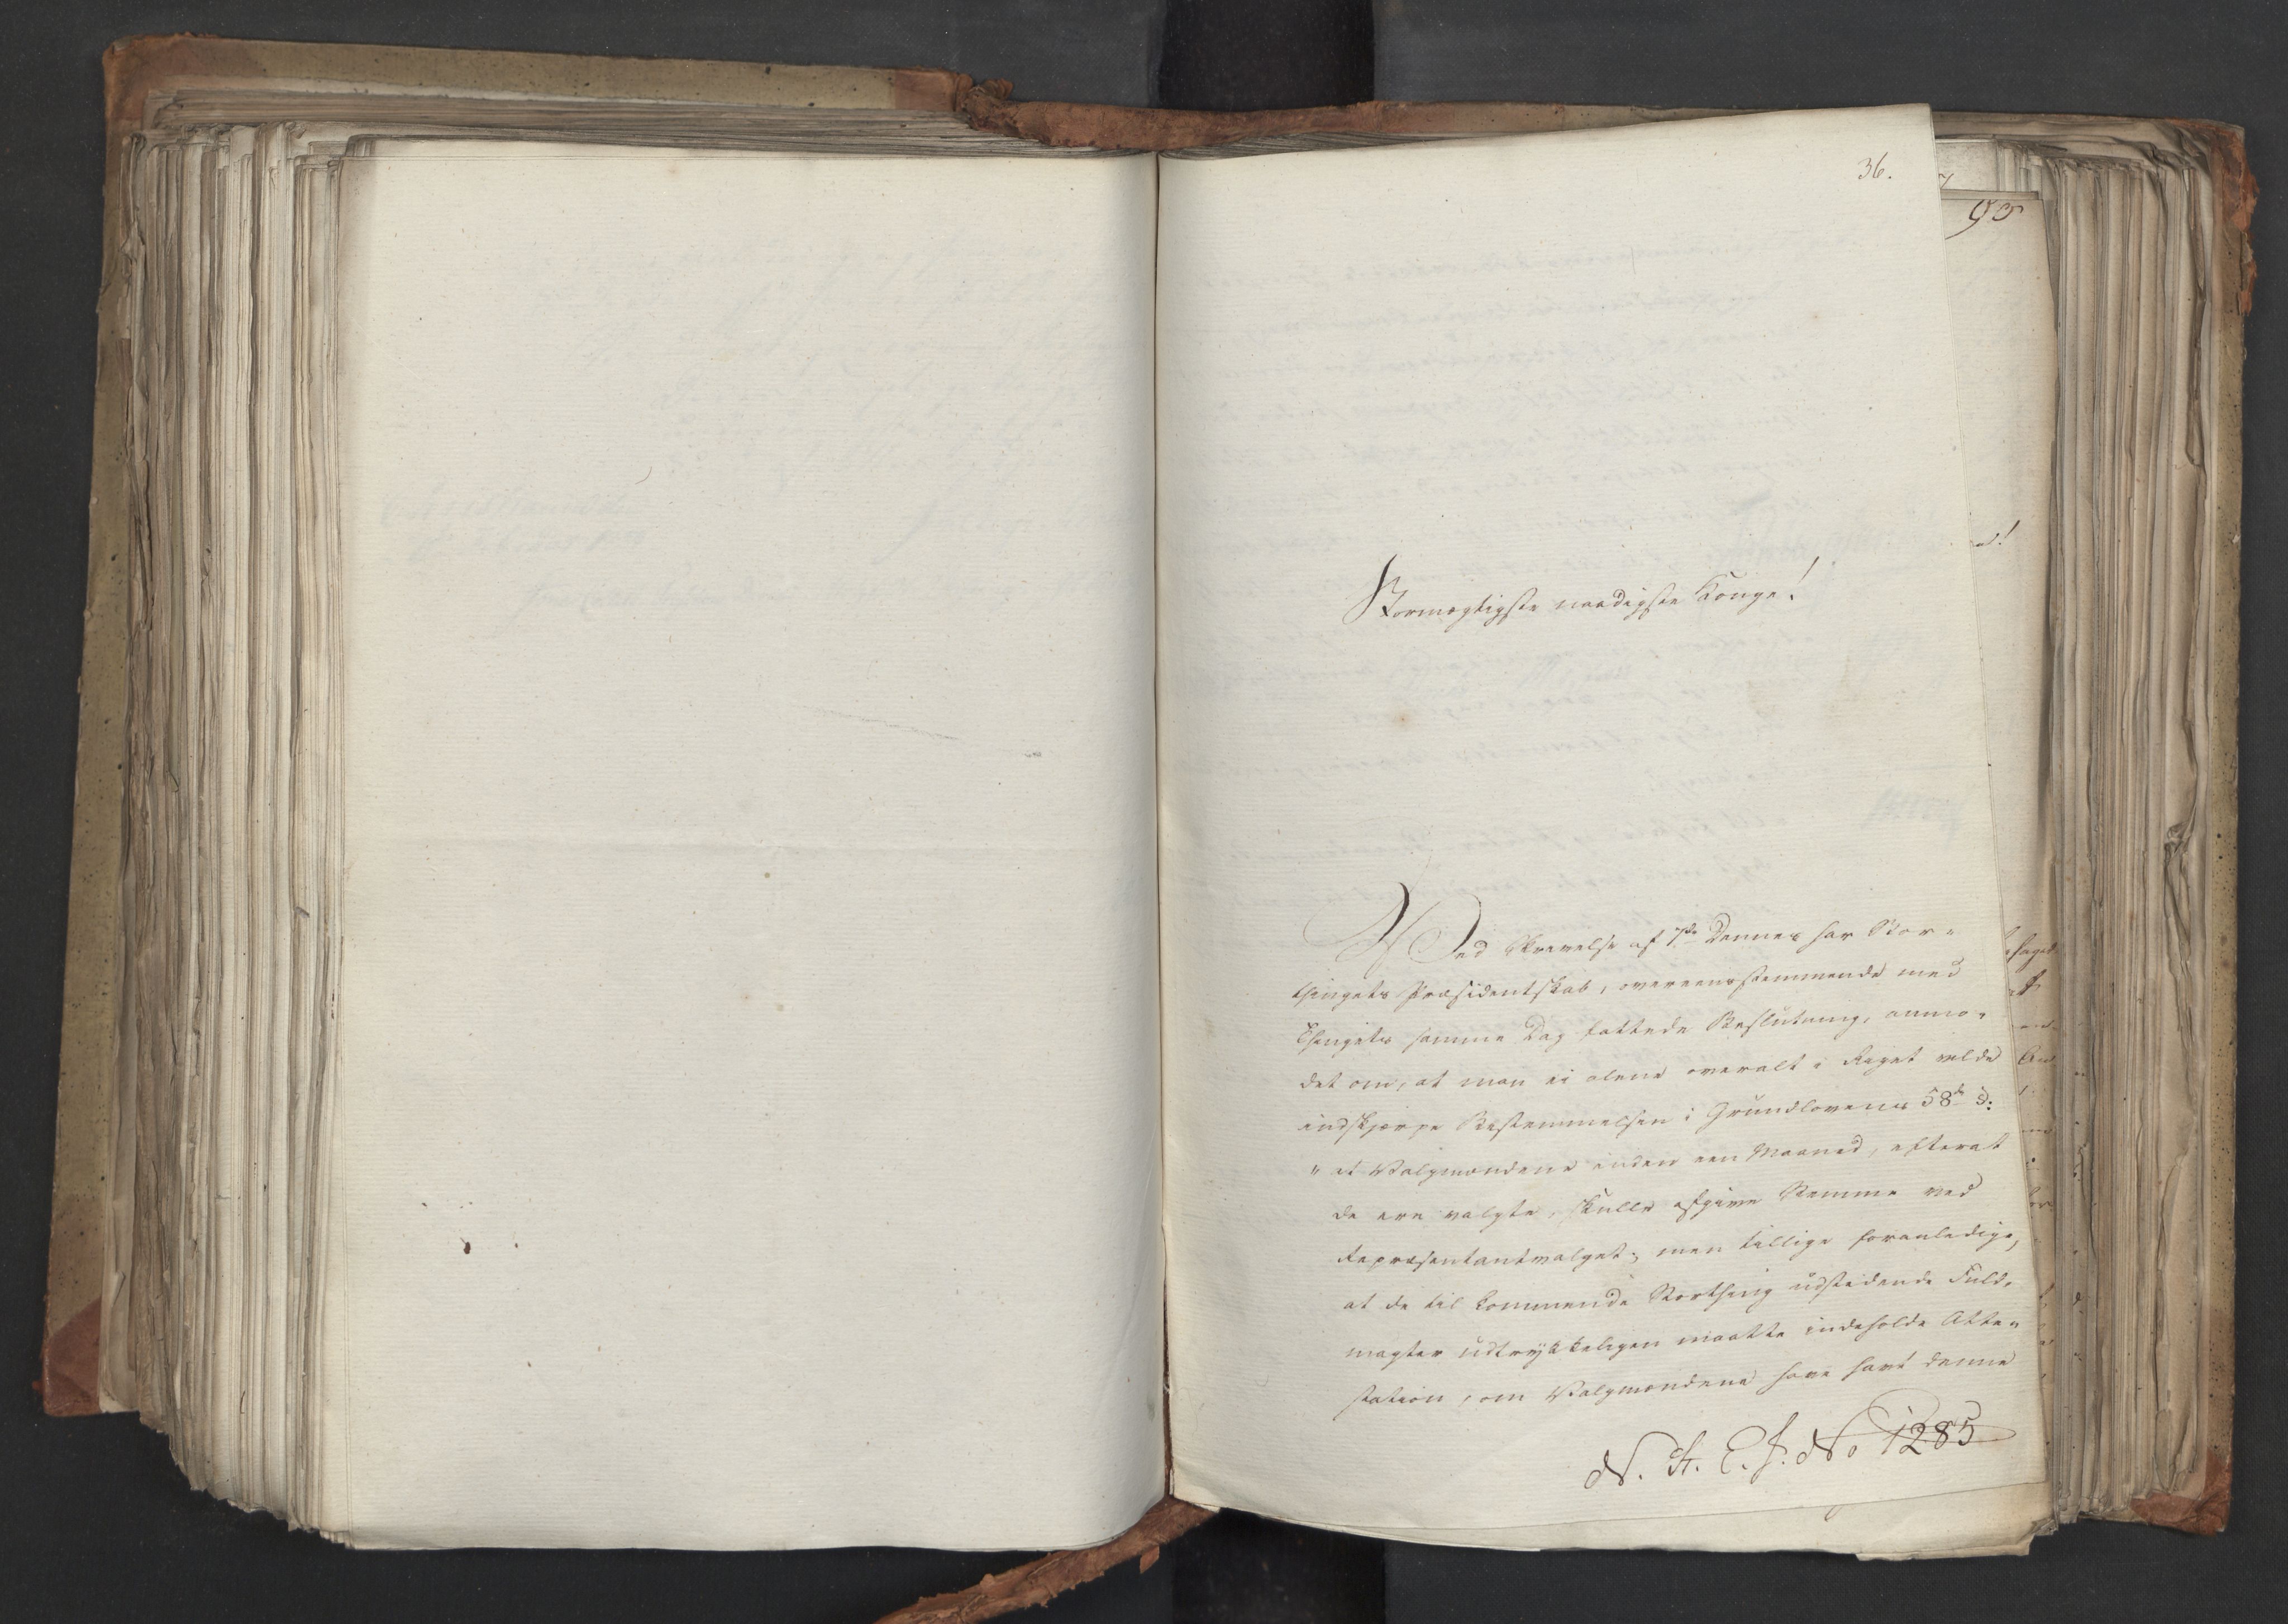 36.
Stormægtigste naadigste Konge!
Ved Skrivelse af 7de Dennes har Stor-
thingets Præsidentskab, overeensstemmende med
Thingets samme Dag fattede Beslutning, anmo-
det om, at man ei alene overalt i Riget vilde
indskjærpe Bestemmelsen i Grundlovens 58de §:
"at Valgmændene inden een Maaned, efterat
de ere valgte, skulle afgive Stemme ved
Repræsentantvalget; men tillige foranledige,
at de til kommende Storthing udstedende Fuld-
magter udtrykkeligen maatte indeholde Atte-
station, om Valgmændene have havt denne
N. St. E. J. No 1285
95